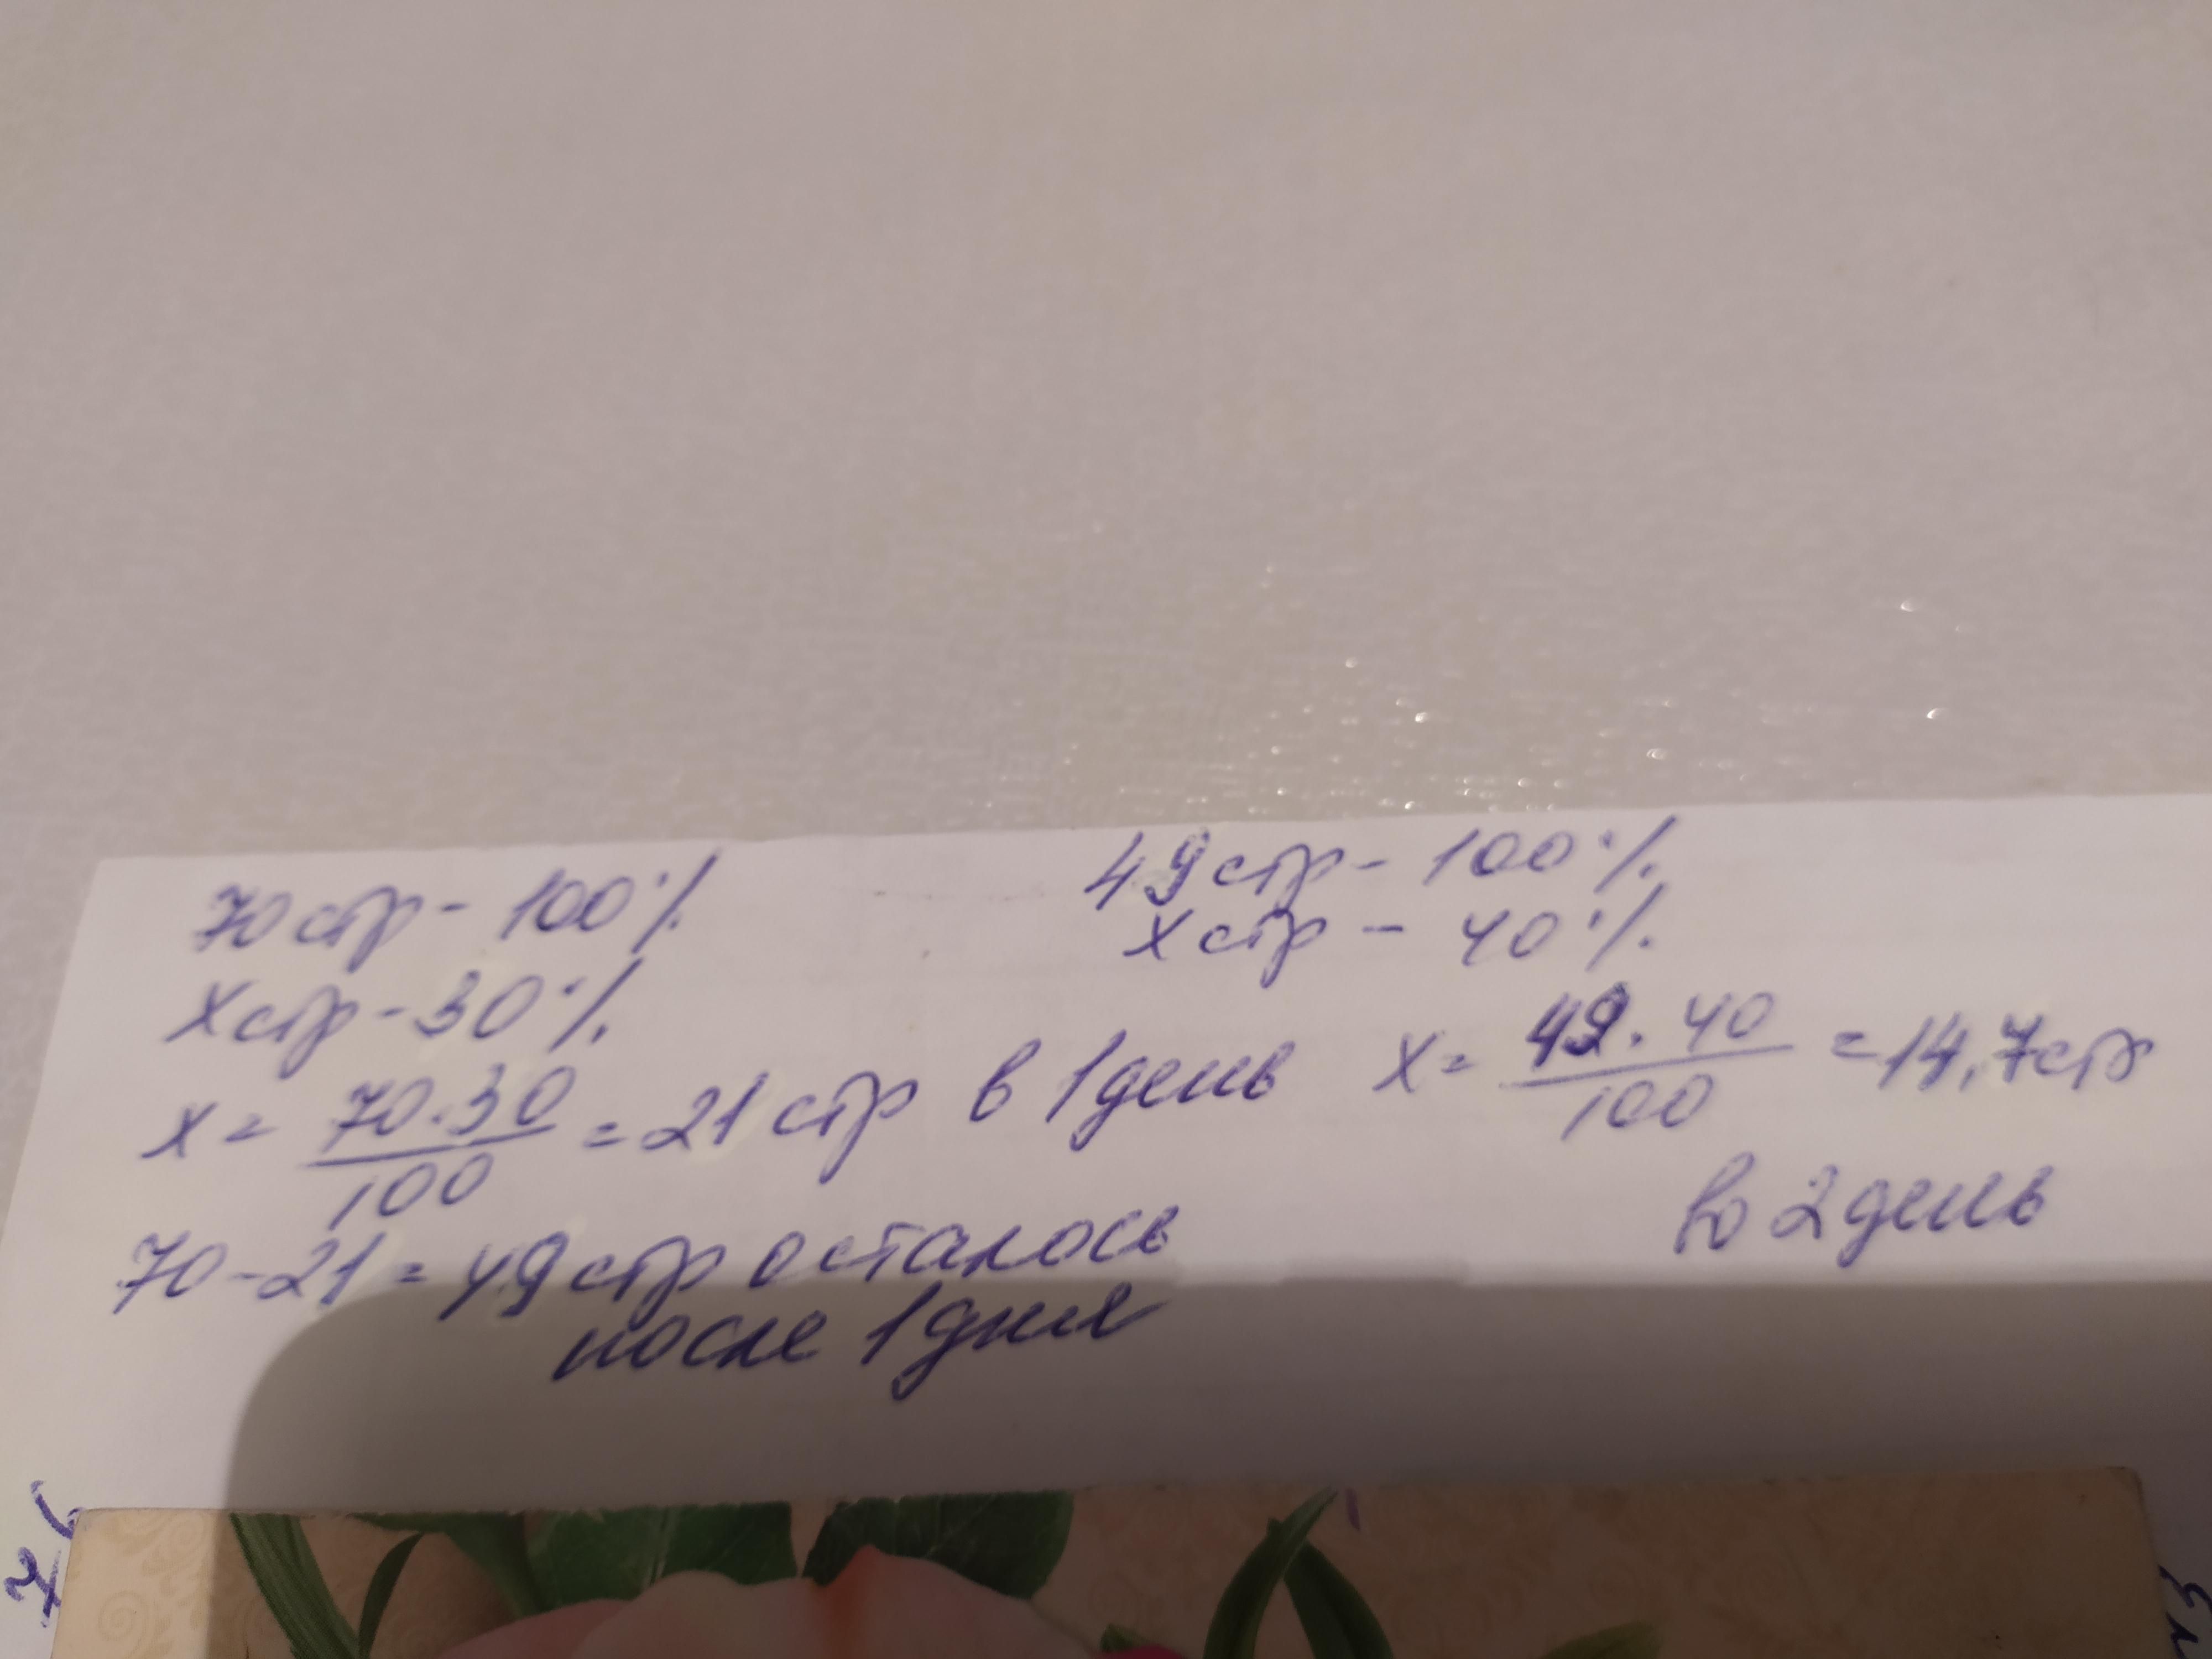 70 стр - 100%
х стр - 30%
х = 70·30/100 = 21 стр в 1 день
70-21 = 49 стр осталось
после 1 дня
49 стр - 100%
х стр - 40%
х = 49·40/100 = 14,7 стр
во 2 день